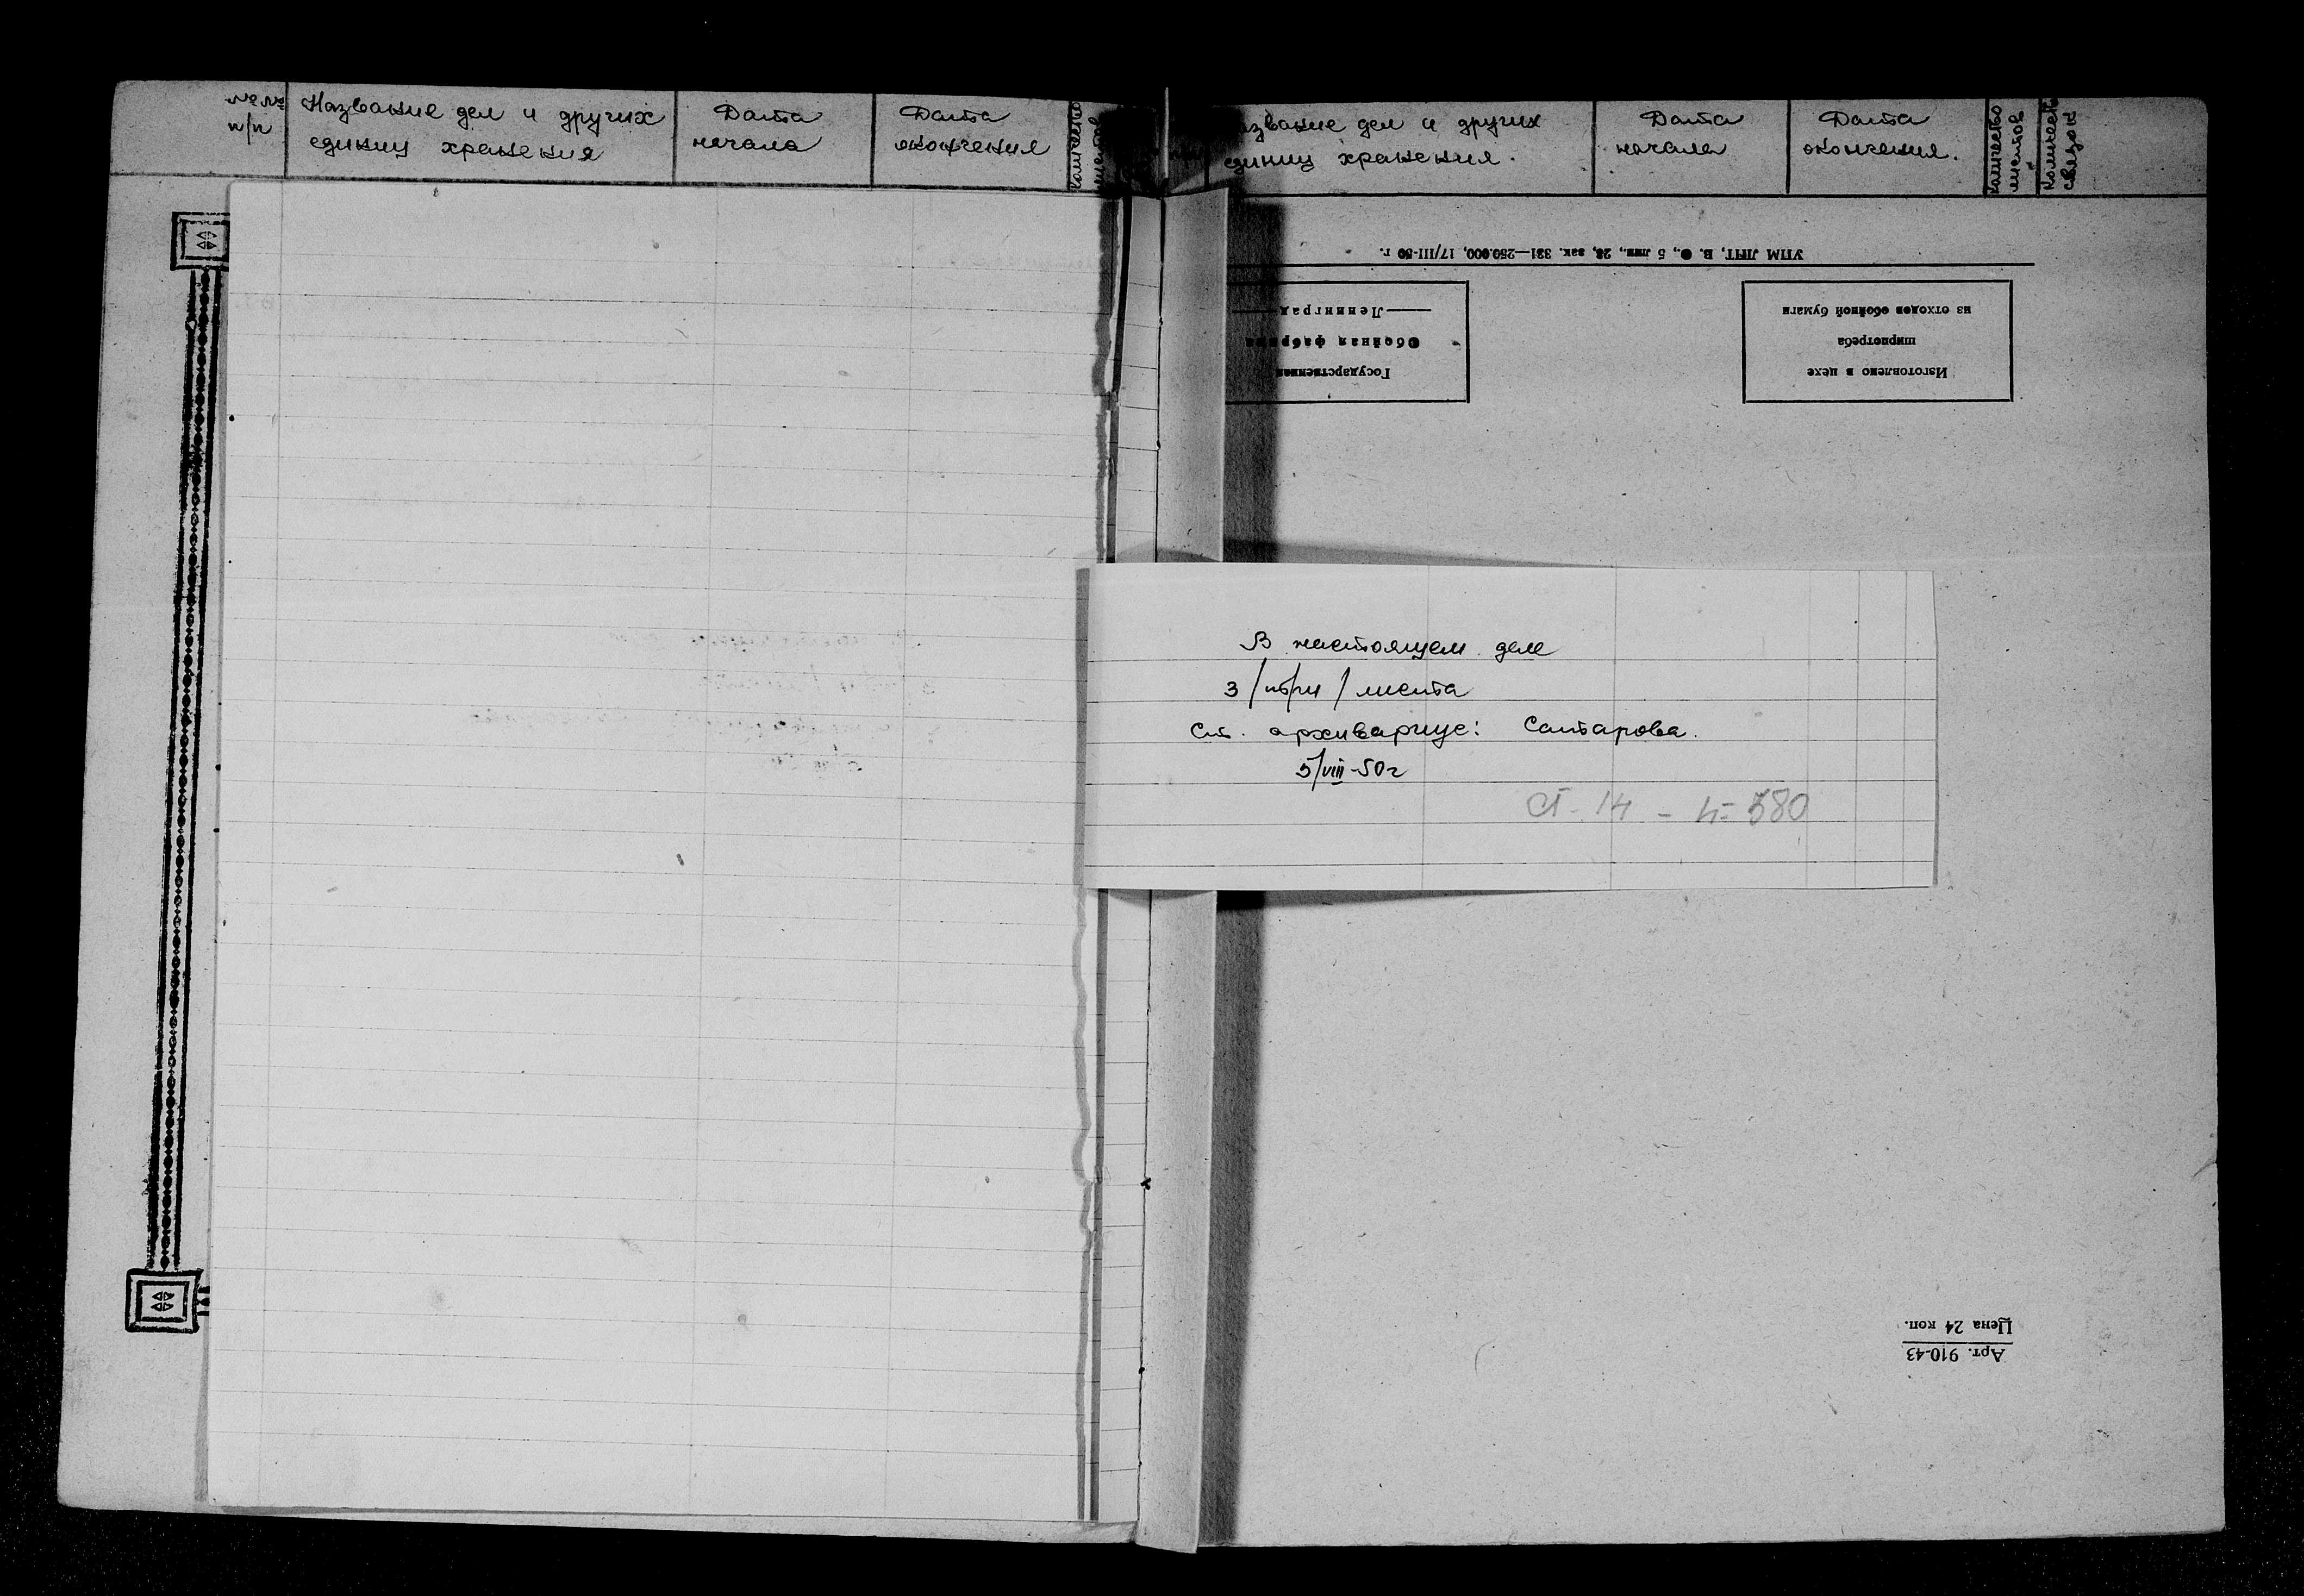 №№ Название дел и других Дата Дата
п/п единиц хранения начала окончения
количество
листов
звание дел и других Дата Дата
единиц хранения. начала окончения.
количество
листов
количество
связок
УПМ ЛПТ, В. О., 5 лин., 28, зак. 331—250.000, 17/III-50 г.
Ленинград
Обойная фабрика
Государственная
из отходов обойной бумаги
ширпотреба
Изготовлено в цехе
В настоящем деле
3 /три/ листа
Ст. архивариус: Сатарова.
5/VIII-50г
Цена 24 коп.
Арт. 910-43